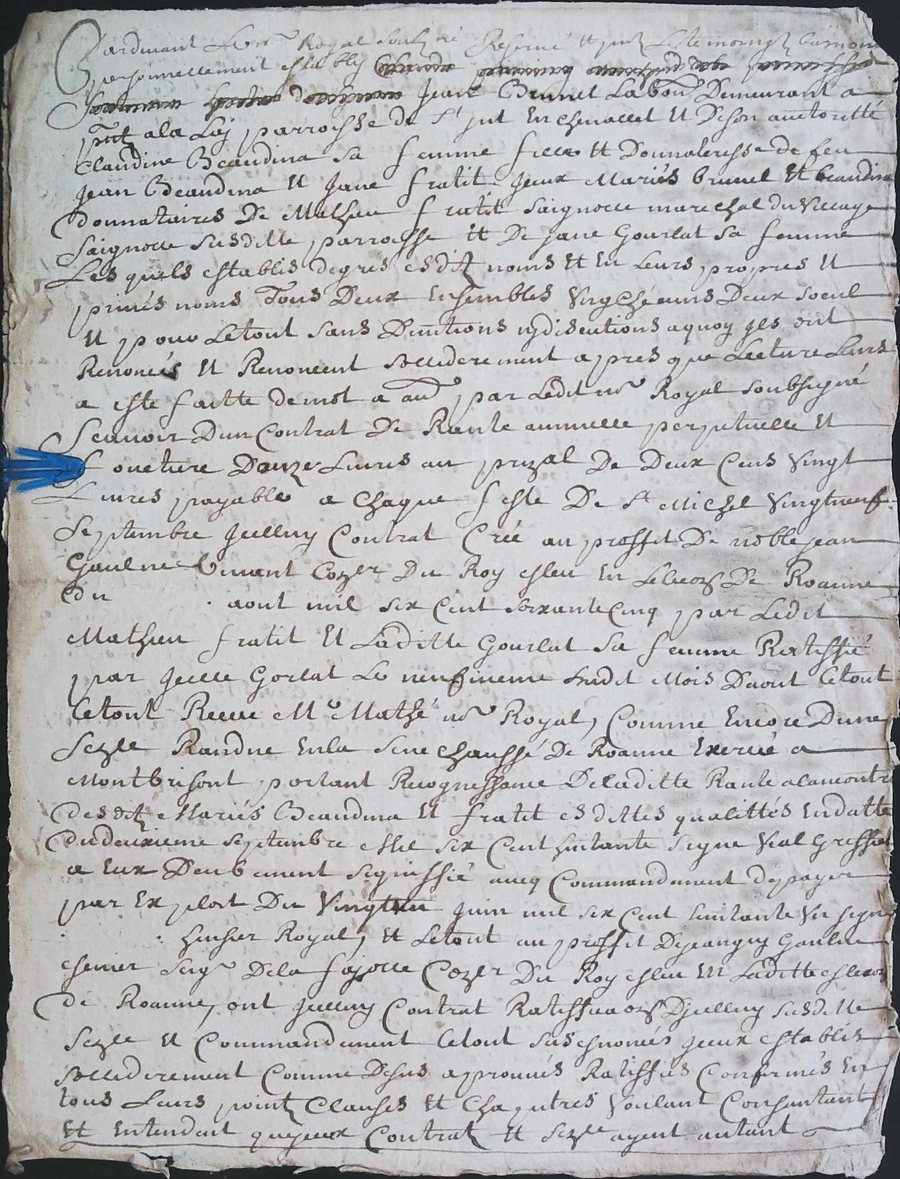 Pardevant le no.re Royal soubz.né Reservé et pnt les temoings bas nom
personnellement estably
Jean Brunel Labou.r Demeurant a
pnt a la Lij parroisse de St jut En chevallet Et De son auctoritté
Claudine Beaudina sa femme fille et Donnateresse de feu
Jean Beaudina Et Jane fratit jeux Mariés brunel Et beaudina
donnataires De Mathieu fratit Saignolle marechal du Village
Saignolle susditte parroisse Et De jane Gourlat sa femme
Les quels establis de gres esdits noms Et En Leurs propres Et
privés noms Tous Deux Ensembles Ung chacuns Deux seul
Et pour Letout sans Divitions ny discutions a quoy jls ont
Renoncés Et Renoncent sollideremen a pres que Lecture Leurs
a esté faitte de mot a au.e par Ledit no.re Royal soubsigné
Scavoir Dun Contrat De Rante annuelle perpetuelle Et
fonciere Donze Livres au prizal De Deux Cens Vingt
Livres payable a Chaque feste De St Michel Vingtneuf
Septembre jcelluy Contrat Créé au proffit De noble jean
Gaulne Vivant Con.er Du Roy esleu En Lelecon De Roanne
du aout mil six Cent soixante Cinq par Ledit
Mathieu fratit Et Laditte Gourlat sa femme Rattiffié
par jcelle Gorlat Le neufvieme dudit Mois Daout Letout
Letout Receu M.e Mathé no.re Royal, Comme Encore Dune
Sen.ce Randue En la Sene chaussé De Roanne Exercée a
Montbrisont portant Recognessance De Laditte Rante alancontre
desdits Mariés Beaudina Et fratit esdittes qualittés En datte
du deuxieme Septembre Mil six Cent huitante Signe Vial Greffier
a Eux Deubement signiffié avecq Commandement de payer
par Exploit Du Vingt un Juin mil six Cent huitante Un signe
huisier Royal, Et Letout au proffit De jeanguy Gaulne
Seig.r De la fajolle Con.er Du Roy esleu En Laditte eslecon
De Roanne, ont jcelluy Contrat Rattiffica.on D'jcelluy susditte
Sen.ce Et Commandement Letout sus esnoncés jceux establis
sollideremen Comme Desus aprouvés Ratiffiés Confirmés En
tous Leurs pointz Clauses Et Chapitres Voulant Consentant
Et Entendant que jceux Contratz Et Sen.ce ayent autant